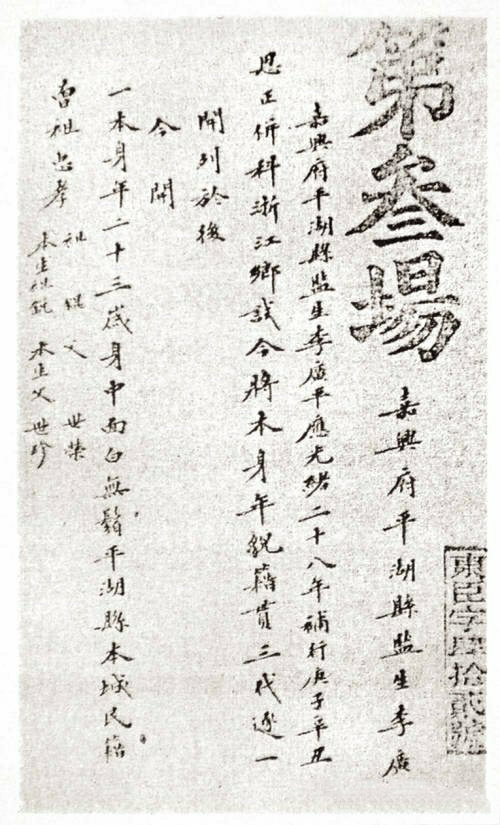 東臣字肆拾貳號
第叁場
嘉興府平湖縣監生李廣
嘉興府平湖縣監生李廣平應光緒二十八年補行庚子辛丑
恩正併科浙江鄉試今將本身年貌籍貫三代逐一
開列於後
今開
一本身年二十三歲身中面白無鬚平湖縣本城民籍
曾祖忠孝 祖 錕 父 世榮
本生祖銳 本生父 世珍